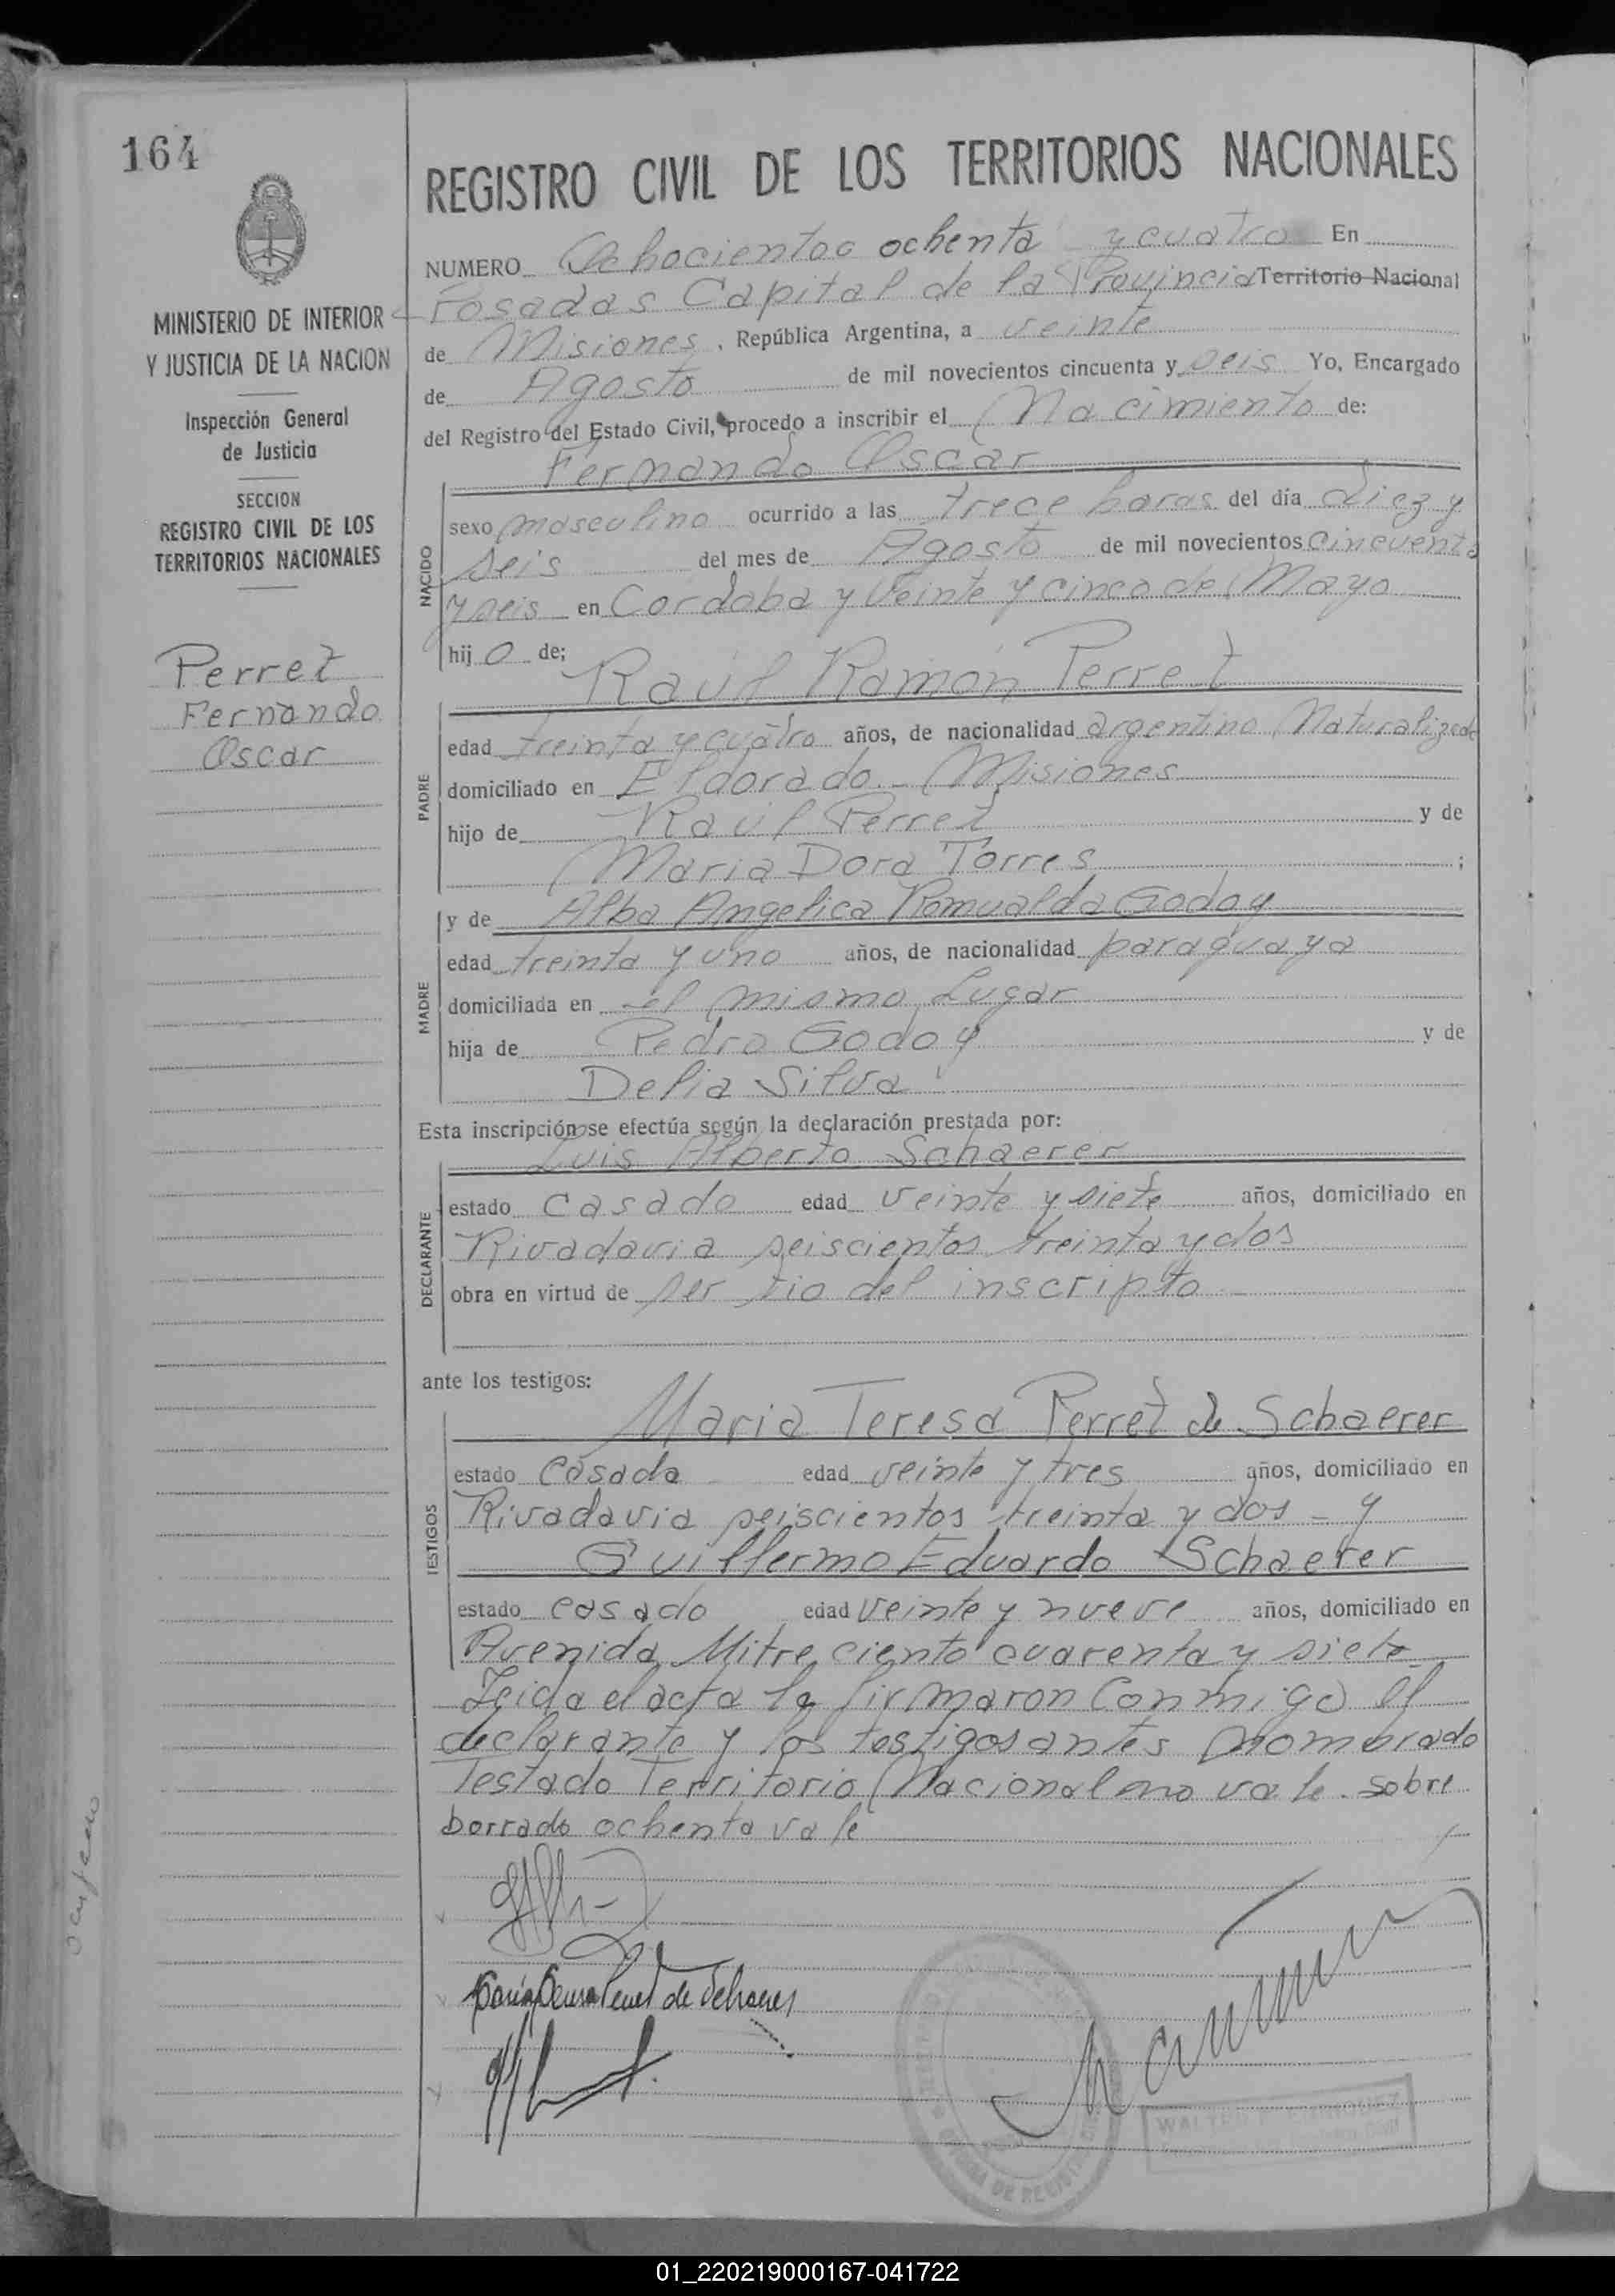 164
MINISTERIO DE INTERIOR
Y JUSTICIA DE LA NACION
Inspección General
de Justicia
SECCION
REGISTRO CIVIL DE LOS
TERRITORIOS NACIONALES
Perret
Fernando
Oscar
REGISTRO CIVIL DE LOS TERRITORIOS NACIONALES
NUMERO Ochocientos ochenta y cuatro En
Posadas Capital de la Provincia Territorio Nacional
de Misiones, República Argentina, a veinte
de Agosto de mil novecientos cincuenta y seis Yo, Encargado
del Registro del Estado Civil, procedo a inscribir el Nacimiento de:
Fernando Oscar
NACIDO
sexo masculino ocurrido a las trece horas del día diez y
seis del mes de Agosto de mil novecientos cincuenta
y seis en Cordoba y Veinte y cinco de Mayo
hijo de;
Raúl Ramón Perret
PADRE
edad treinta y cuatro años, de nacionalidad argentino Naturalizado
domiciliado en Eldorado - Misiones
hijo de Raúl Perret y de
Maria Dora Torres ;
MADRE
y de Alba Angelica Romualda Godoy
edad treinta y uno años, de nacionalidad paraguaya
domiciliada en el mismo Lugar
hija de Pedro Godoy y de
Delia Silva
Esta inscripción se efectúa según la declaración prestada por:
Luis Alberto Schaerer
DECLARANTE
estado casado edad veinte y siete años, domiciliado en
Rivadavia seiscientos treinta y dos
obra en virtud de ser tio del inscripto
ante los testigos:
TESTIGOS
Maria Teresa Perret de Schaerer
estado casada edad veinte y tres años, domiciliado en
Rivadavia seiscientos treinta y dos - y
Guillermo Eduardo Schaerer
estado casado edad veinte y nueve años, domiciliado en
Avenida Mitre ciento cuarenta y siete
Leida el acta la firmaron conmigo el
declarante y los testigos antes nombrado
Testado Territorio Nacional no vale. Sobre
borrado ochenta vale
de Schaerer
WALTER ENRIQUEZ
01_220219000167-041722